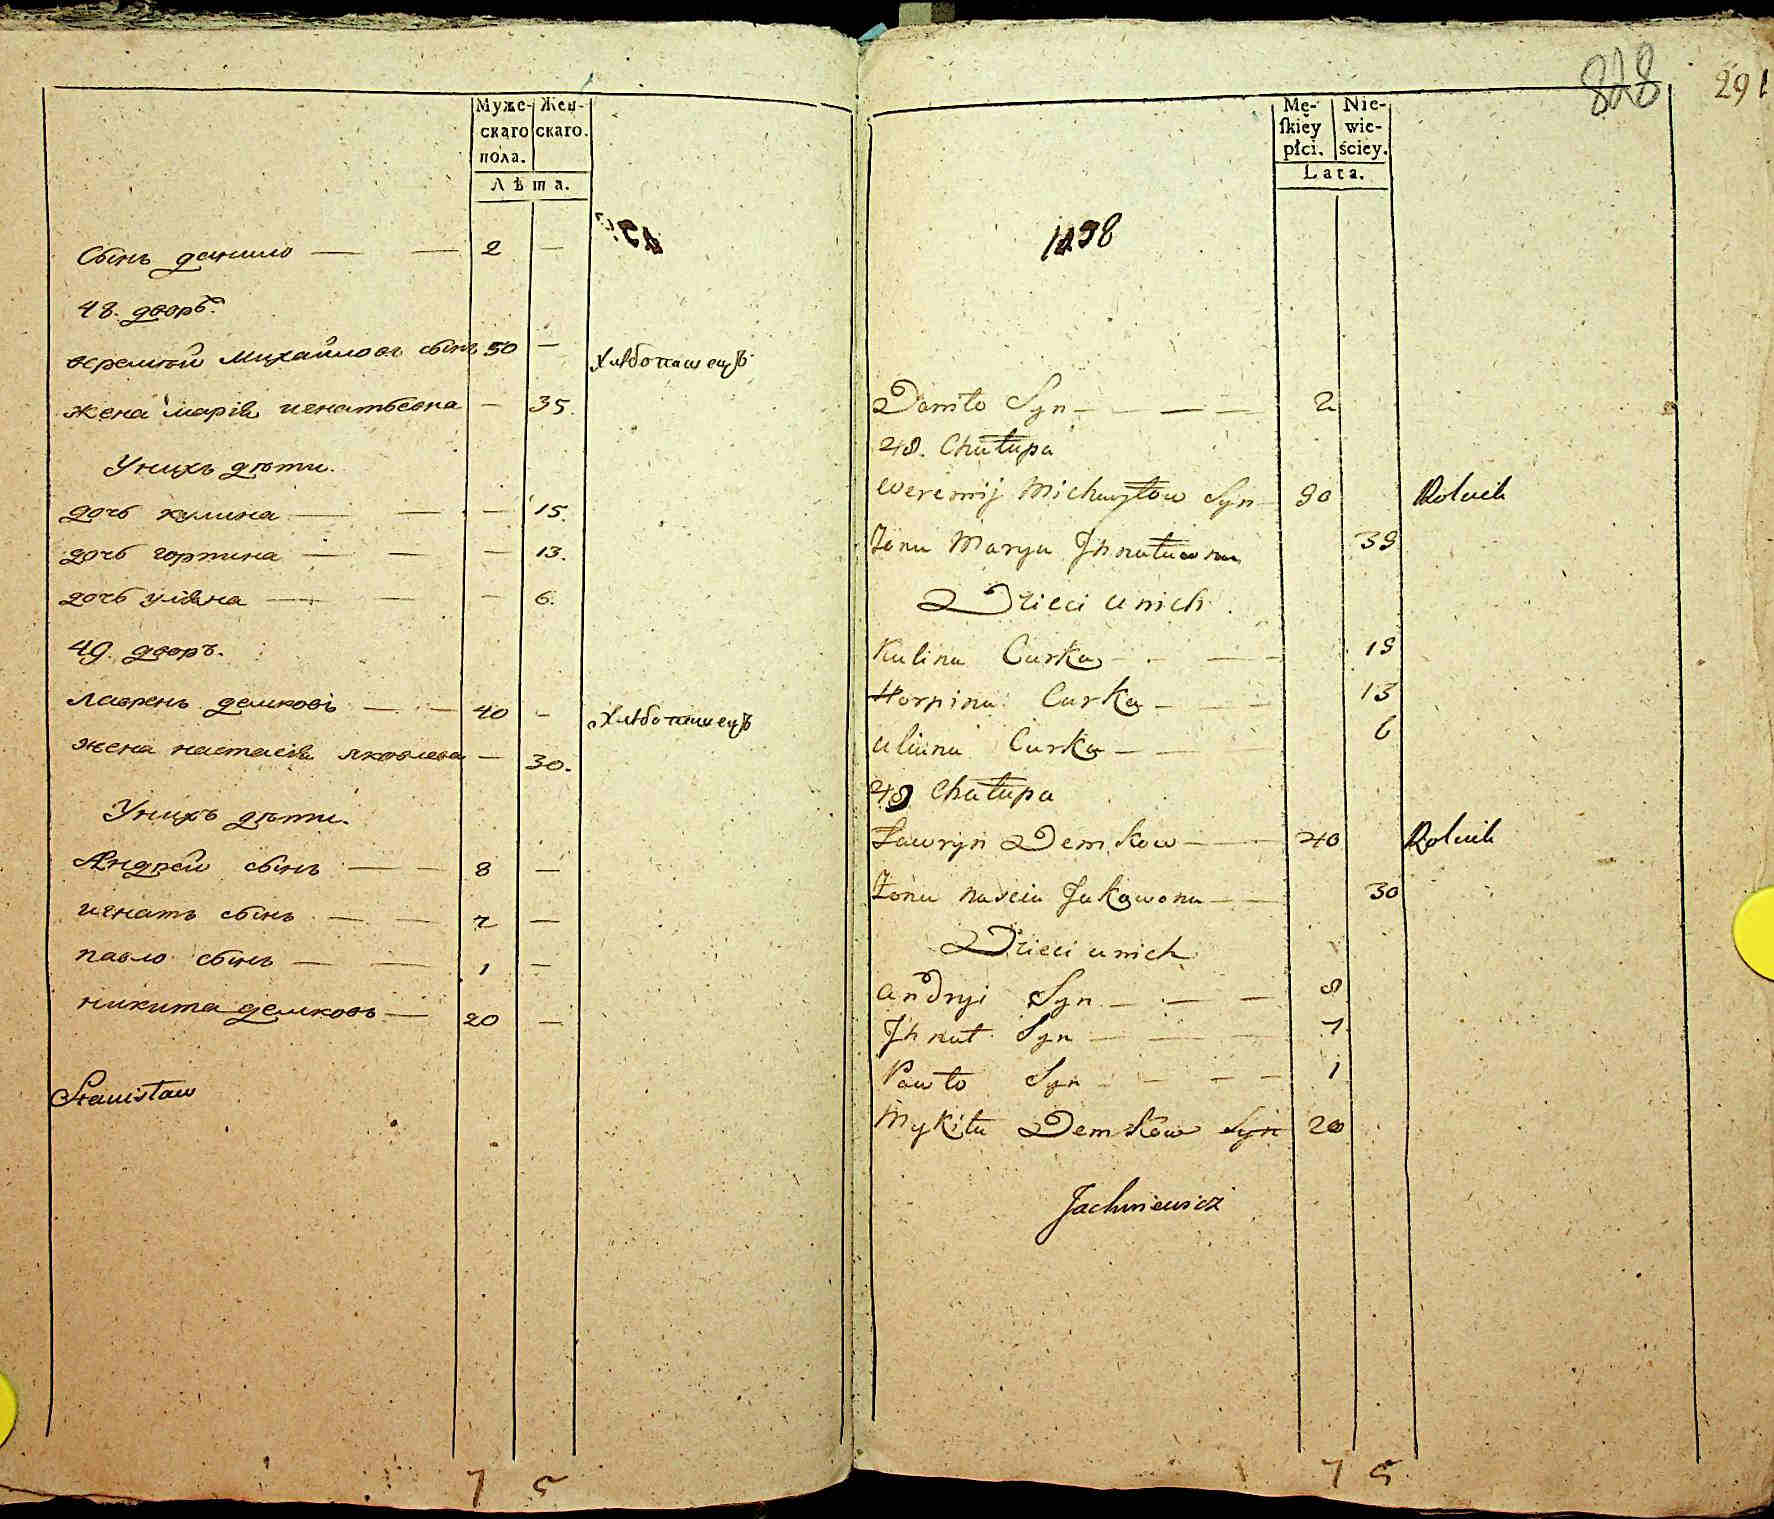 Муже- Жен-
скаго скаго.
пола.
Лѣта.
Сынъ данило — — 2 —
48. дворъ.
веремѣй Михайловъ сынъ 50 — Хлѣбопашецъ
жена марія игнатьевна — 35.
Унихъ дѣти.
дочь кулина — — — 15.
дочь горпина — — — 13.
дочь уліяна — — — 6.
49. дворъ.
лаврень демковъ — — 40 — Хлѣбопашецъ
жена настасія яковлева — 30.
Унихъ дѣти.
Андрей сынъ — — 8 —
игнатъ сынъ — — 7 —
павло сынъ — — 1 —
никита демковъ — 20 —
Stanisław
7 5
828 291
Mę- Nie-
skiey wie-
płci. ściey.
Lata.
Daniło Syn — — — — 2
48. Chałupa
Weremij Michayłow Syn 50 Rolnik
Żona Marya Ihnatiowna 35
Dzieci u nich.
Kulina Curka — — — 15
Horpina Curka — — — 13
Uliana Curka — — 6
49 Chałupa
Ławryn Demkow — — 40 Rolnik
Żona Nascia Jakowona — — 30
Dzieci u nich
Andryi Syn — — — 8
Ihnat Syn — — — 7
Pawło Syn — — — — 1
Mykita Demkow Syn 20
Jachniewicz
7 5